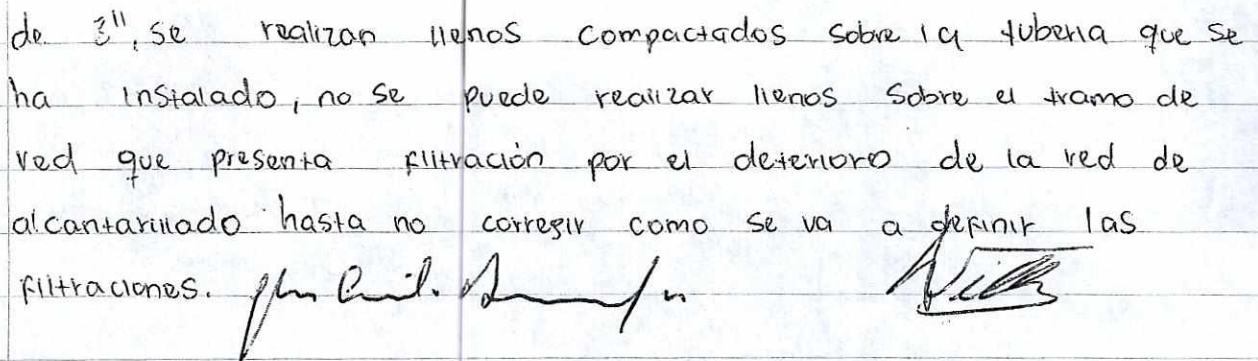 de 3", se realizan llenos compactados sobre la tuberia que se
ha instalado, no se puede realizar llenos sobre el tramo de
red que presenta filtración por el deterioro de la red de
alcantarillado hasta no corregir como se va a definir las
filtraciones.